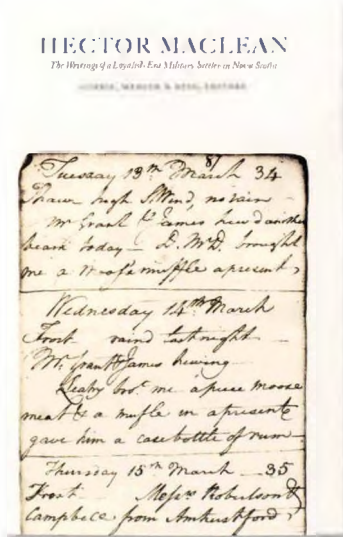 HECTOR MACLEAN
The Writings of a Loyalist-Era Military Settler in Nova Scotia
EDITORS
Tuesday 13th March 34
Thaw high S. Wind, no rain
Mr Grant & James hew'd another
beam today — D. McD. brought
me a Moose muffle a present,
Wednesday 14th March
Frost raind last night
Mr. Grant & James hewing
Leahy bro.t me a piece moose
meat & a mufle in a presente
gave him a case bottle of rum —
Thursday 15th March — 35
Frost — Messrs Robertson &
Campbell from Amhurstford,